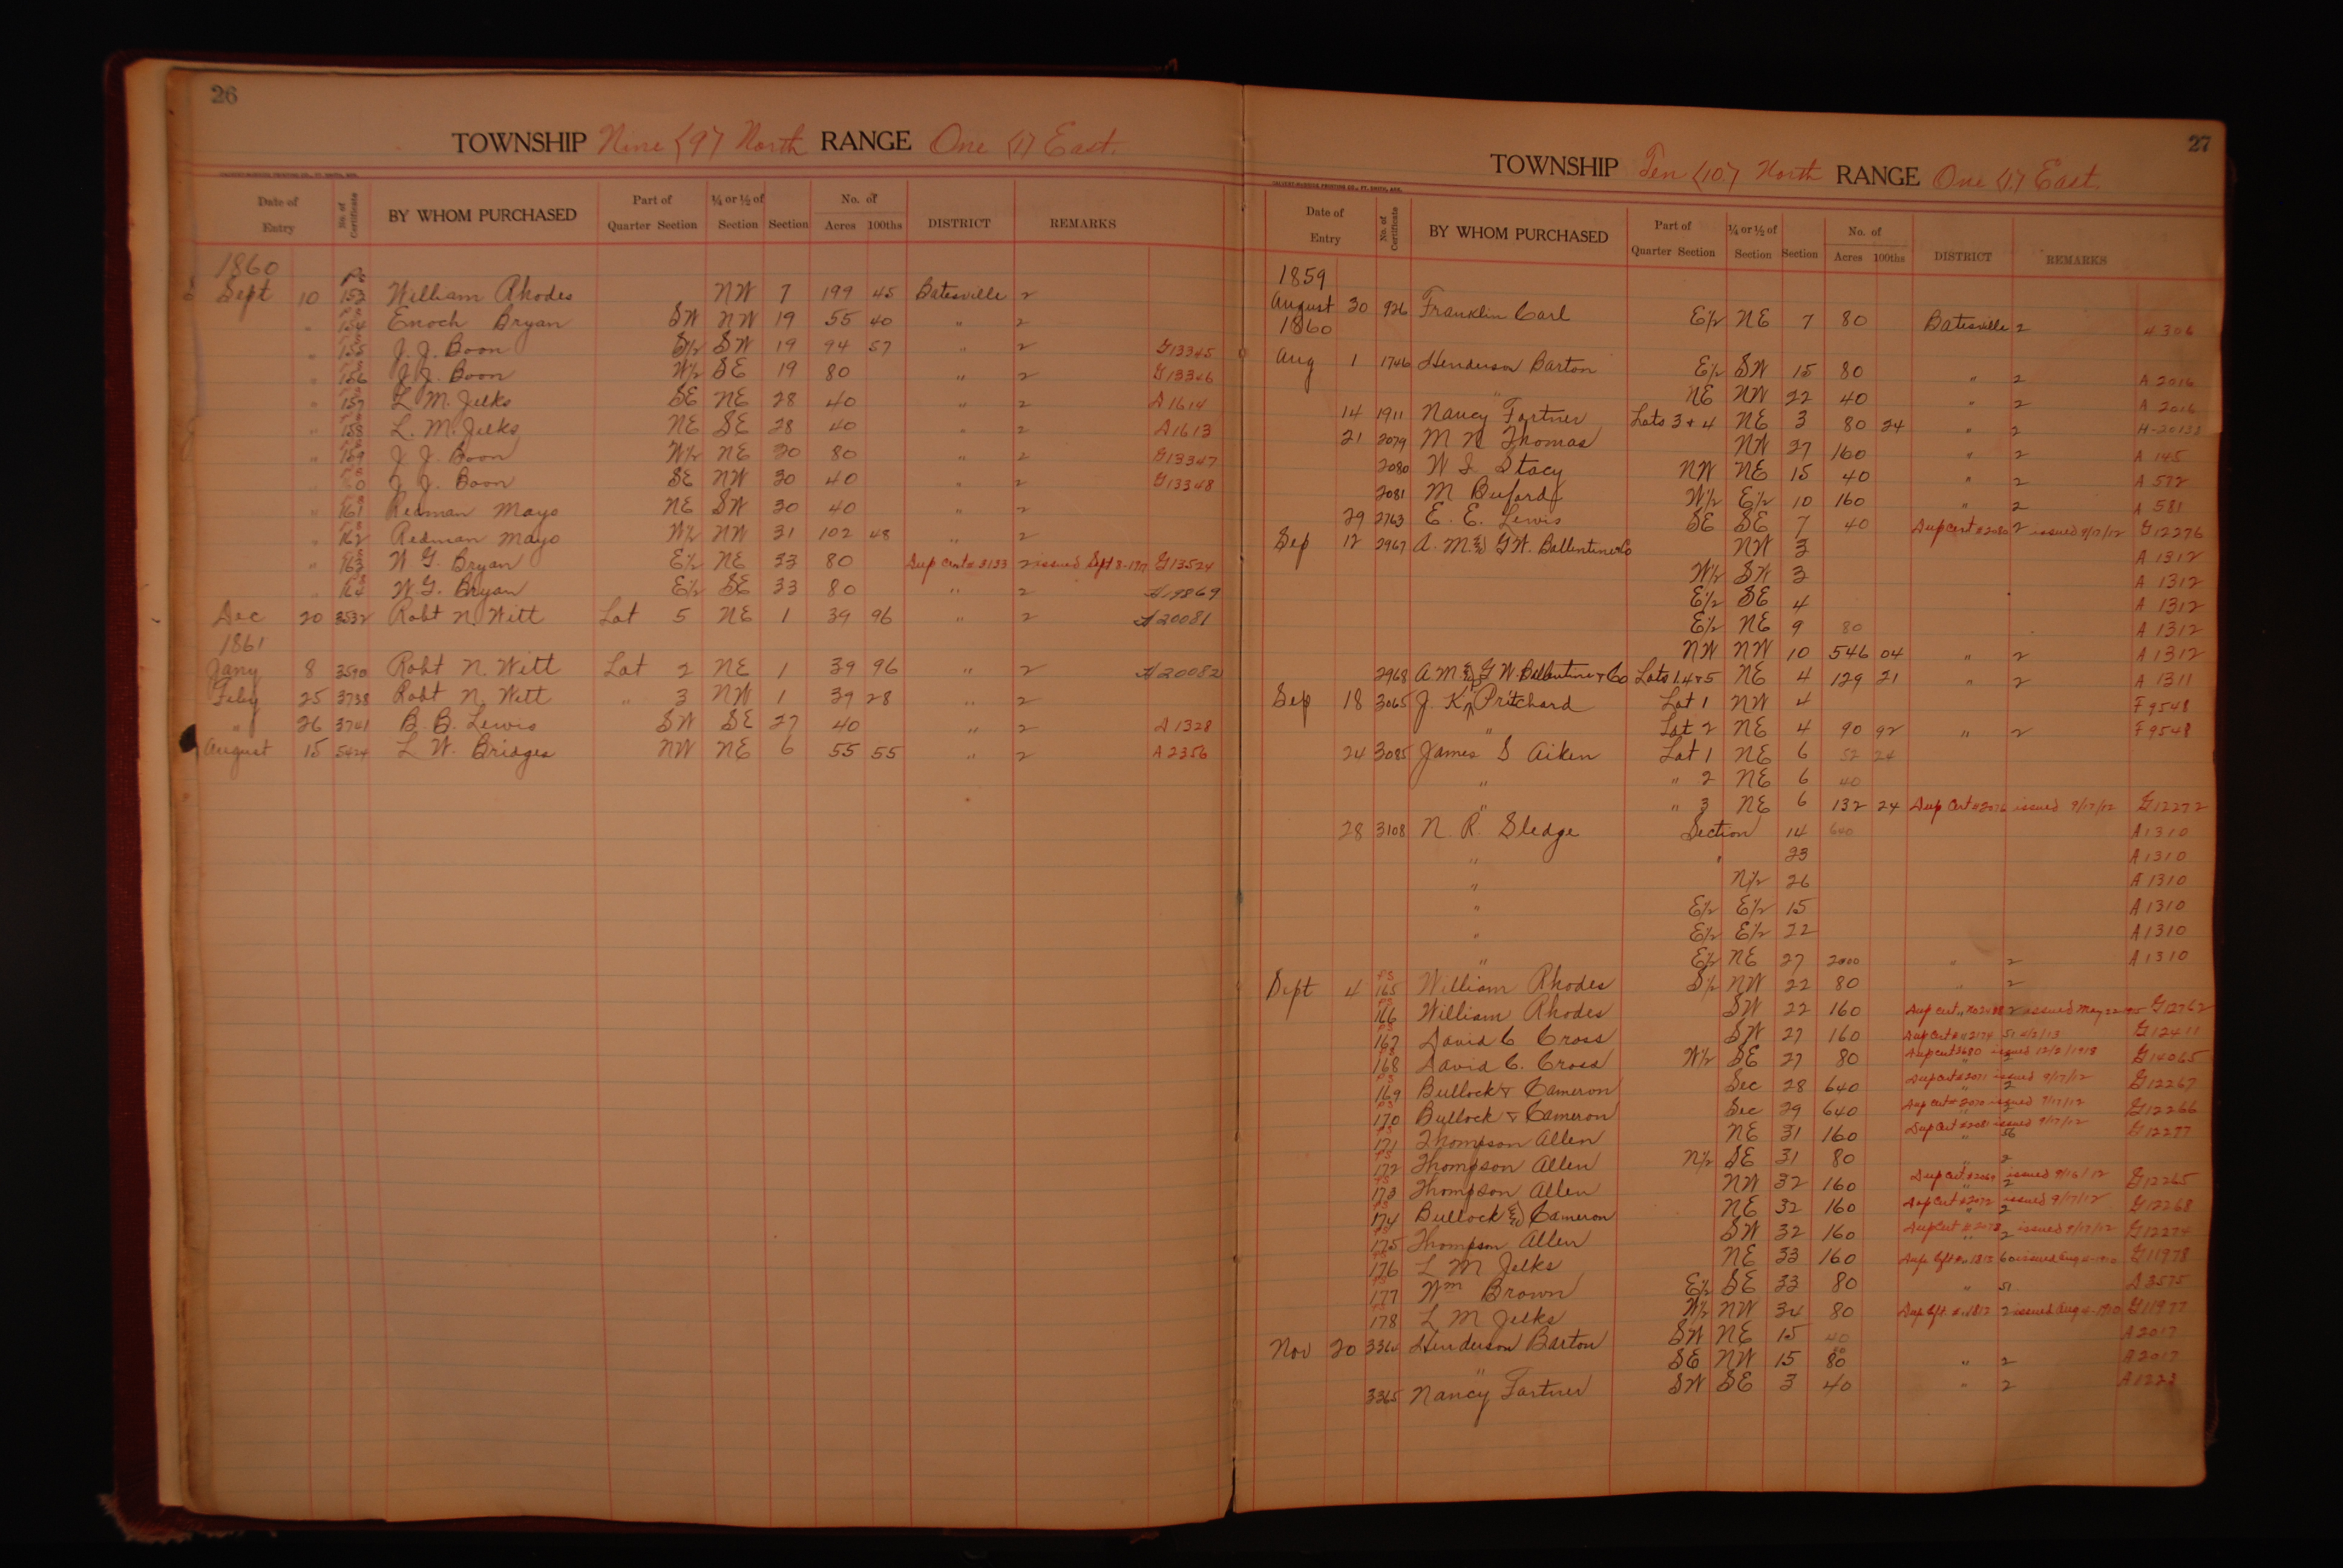 26
TOWNSHIP Nine (9) North RANGE One (1) East.
Date of Entry No. of Certificate BY WHOM PURCHASED Part of Quarter Section ¼ or ½ of Section Section No. of Acres 100ths DISTRICT REMARKS
1860
Sept 10 153 William Rhodes NW 7 199 45 Batesville 2
" 154 Enoch Bryan SW NW 19 55 40 " 2
" 155 J. J. Boon S½ SW 19 94 57 " 2 G13345
" 156 J. J. Boon W½ SE 19 80 " 2 G13346
" 157 L. M. Jelks SE NE 28 40 " 2 A1614
" 158 L. M. Jelks NE SE 28 40 " 2 A1613
" 159 J. J. Boon W½ NE 30 80 " 2 G13347
" J. J. Boon SE NW 30 40 " 2 G13348
" 161 Redman Mayo NE SW 30 40 " 2
" 162 Redman Mayo W½ NW 31 102 48 " 2
" 163 W. G. Bryan E½ NE 33 80 Dup Cert # 3133 2 issued Sept 8- G13524
" 164 W. G. Bryan E½ SE 33 80 " 2 H19869
Dec 20 3532 Robt N. Witt Lot 5 NE 1 39 96 " 2 H20081
1861
Jany 8 3590 Robt N. Witt Lot 2 NE 1 39 96 " 2 H20082
Feby 25 3738 Robt N. Witt " 3 NW 1 39 28 " 2
" 26 3741 B. B. Lewis SW SE 27 40 " 2 A1328
August 15 5424 L. W. Bridges NW NE 6 55 55 " 2 A2356
27
TOWNSHIP Ten (10) North RANGE One (1) East.
Date of Entry No. of Certificate BY WHOM PURCHASED Part of Quarter Section ¼ or ½ of Section Section No. of Acres 100ths DISTRICT REMARKS
1859
August 30 926 Franklin Carl E½ NE 7 80 Batesville 2 H306
1860
Aug 1 1746 Henderson Barton E½ SW 15 80 " 2 A 2016
" NE NW 22 40 " 2 A 2016
14 1911 Nancy Fortner Lots 3 + 4 NE 3 80 24 " 2
21 2079 M N Thomas NW 27 160 " 2 A 145
2080 W I Stacy NW NE 15 40 " 2 A 572
2081 M Buford W½ E½ 10 160 " 2 A 581
29 2763 E. E. Lewis SE SE 7 40 Dup Cert #2080 2 issued 9/17/12 G12276
Sep 12 2967 A. M & G W. Ballentine & Co NW 3 A 1312
W½ SW 3 A 1312
E½ SE 4 A 1312
E½ NE 9 80 A 1312
NW NW 10 546 04 " 2 A 1312
2968 A M & G W. Ballentine & Co Lots 1.4+5 NE 4 129 21 " 2 A 1311
Sep 18 3065 J. K. Pritchard Lot 1 NW 4 F 9548
" Lot 2 NE 4 90 92 " 2 F 9548
24 3085 James S Aiken Lot 1 NE 6 52 24
" " 2 NE 6 40
" " 3 NE 6 132 24 Dup Cert #2076 issued 9/17/12 G12272
28 3108 N. R. Sledge Section 14 640 A1310
" " 23 A1310
" N½ 26 A1310
" E½ E½ 15 A1310
" E½ E½ 22 A1310
" E½ NE 27 2000 " 2 A1310
Sept 4 165 William Rhodes S½ NW 22 80 " 2
166 William Rhodes SW 22 160 Dup cert 2 issued May 22 G12762
167 David C Cross SW 27 160 Dup Cert # 2174 51 4/2/13 G12411
168 David C. Cross W½ SE 27 80 Dup cert 3680 issued 12/2/1918 G14065
169 Bullock & Cameron Sec 28 640 Dup Cert #2071 issued 9/17/12 2 G12267
170 Bullock & Cameron Sec 29 640 Dup Cert # 2070 issued 9/17/12 2 G12266
171 Thompson Allen NE 31 160 Dup Cert #2081 issued 9/17/12 56 G12277
172 Thompson Allen N½ SE 31 80 " 2
173 Thompson Allen NW 32 160 Dup Cert. #2069 issued 9/16/12 2 G12265
174 Bullock & Cameron NE 32 160 Dup Cert #2072 issued 9/17/12 2 G12268
175 Thompson Allen SW 32 160 Dup Cert # 2078 2 issued 9/17/12 G12274
176 L M Jelks NE 33 160 Dup Cft No 1813 60 issued Aug 4-1910 G11978
177 Wm Brown E½ SE 33 80 " 51 A3575
178 L M Jelks W½ NW 34 80 Dup Cft #1812 2 issued Aug 4-1910 G11977
Nov 20 3364 Henderson Barton SW NE 15 40 A2017
" SE NW 15 80 " 2 A2017
3365 Nancy Fortner SW SE 3 40 " 2 A1223